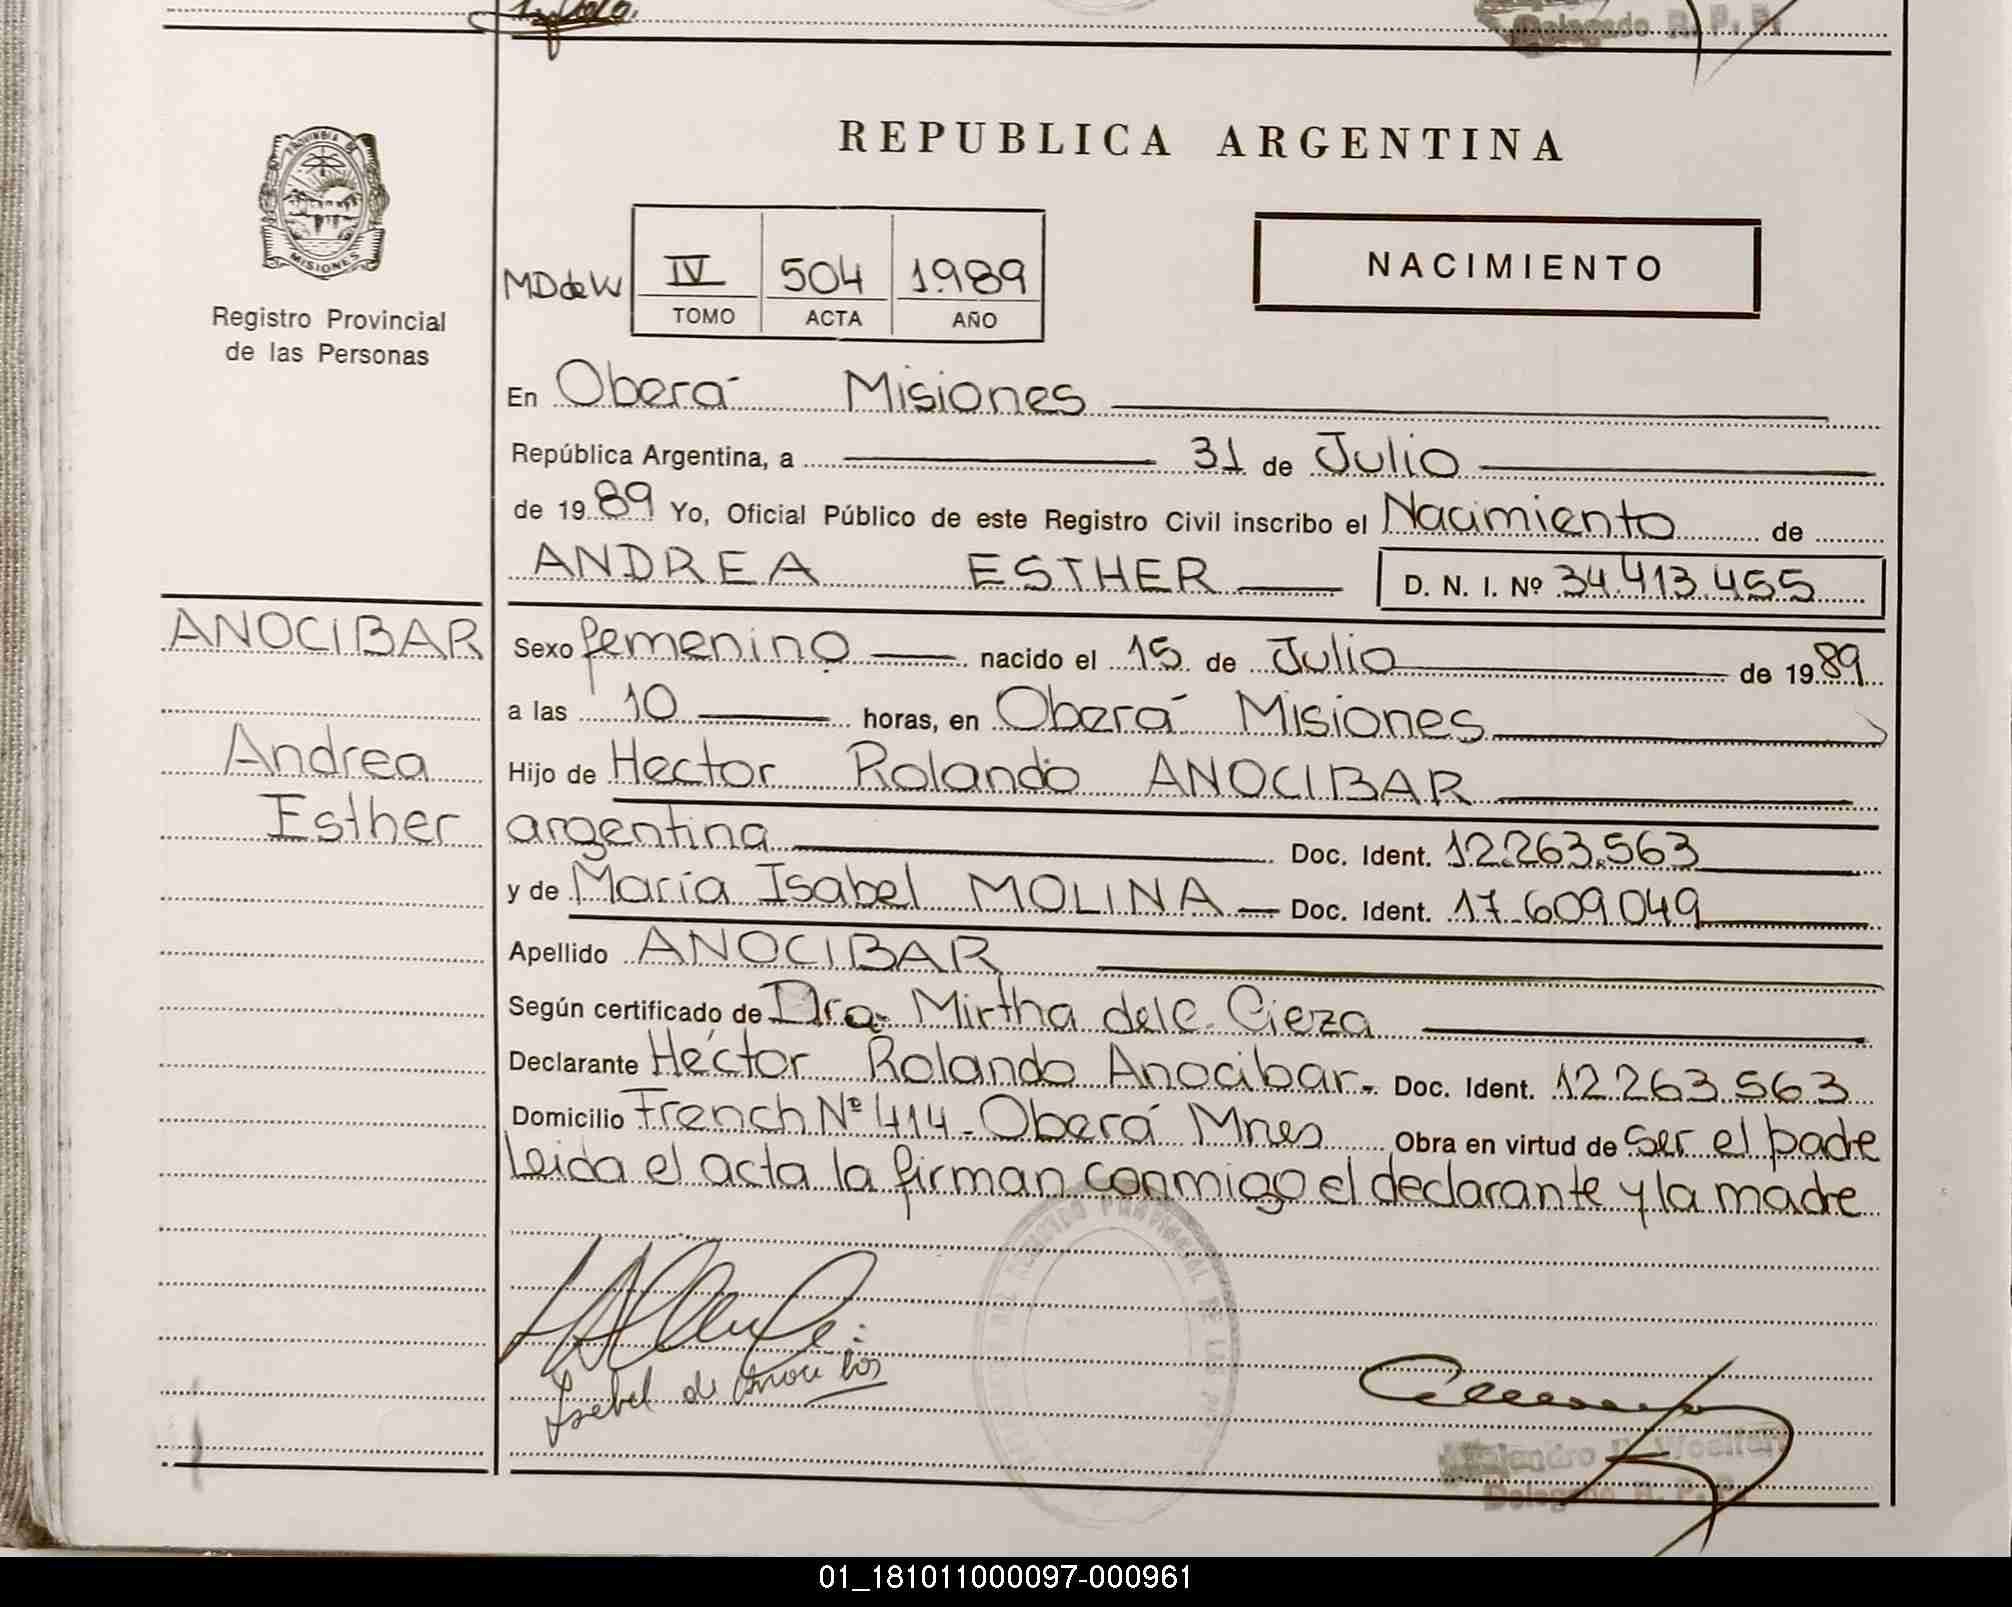 Delegado R. P. P.
PROVINCIA DE
MISIONES
Registro Provincial
de las Personas
REPUBLICA ARGENTINA
NACIMIENTO
MDdeW IV 504 1989
TOMO ACTA AÑO
En Oberá Misiones
República Argentina, a 31 de Julio
de 1989 Yo, Oficial Público de este Registro Civil inscribo el Nacimiento de
ANDREA ESTHER D. N. I. Nº 34.413.455
ANOCIBAR
Andrea
Esther
Sexo femenino nacido el 15 de Julio de 1989
a las 10 horas, en Oberá Misiones
Hijo de Hector Rolando ANOCIBAR
argentina Doc. Ident. 12.263.563
y de María Isabel MOLINA Doc. Ident. 17.609.049
Apellido ANOCIBAR
Según certificado de Dra. Mirtha del C. Cieza
Declarante Héctor Rolando Anocibar. Doc. Ident. 12.263.563
Domicilio French Nº 414 - Oberá Mnes Obra en virtud de ser el padre
Leida el acta la firman conmigo el declarante y la madre
Isabel de Anocibar
Delegado R. P. P.
01_181011000097-000961